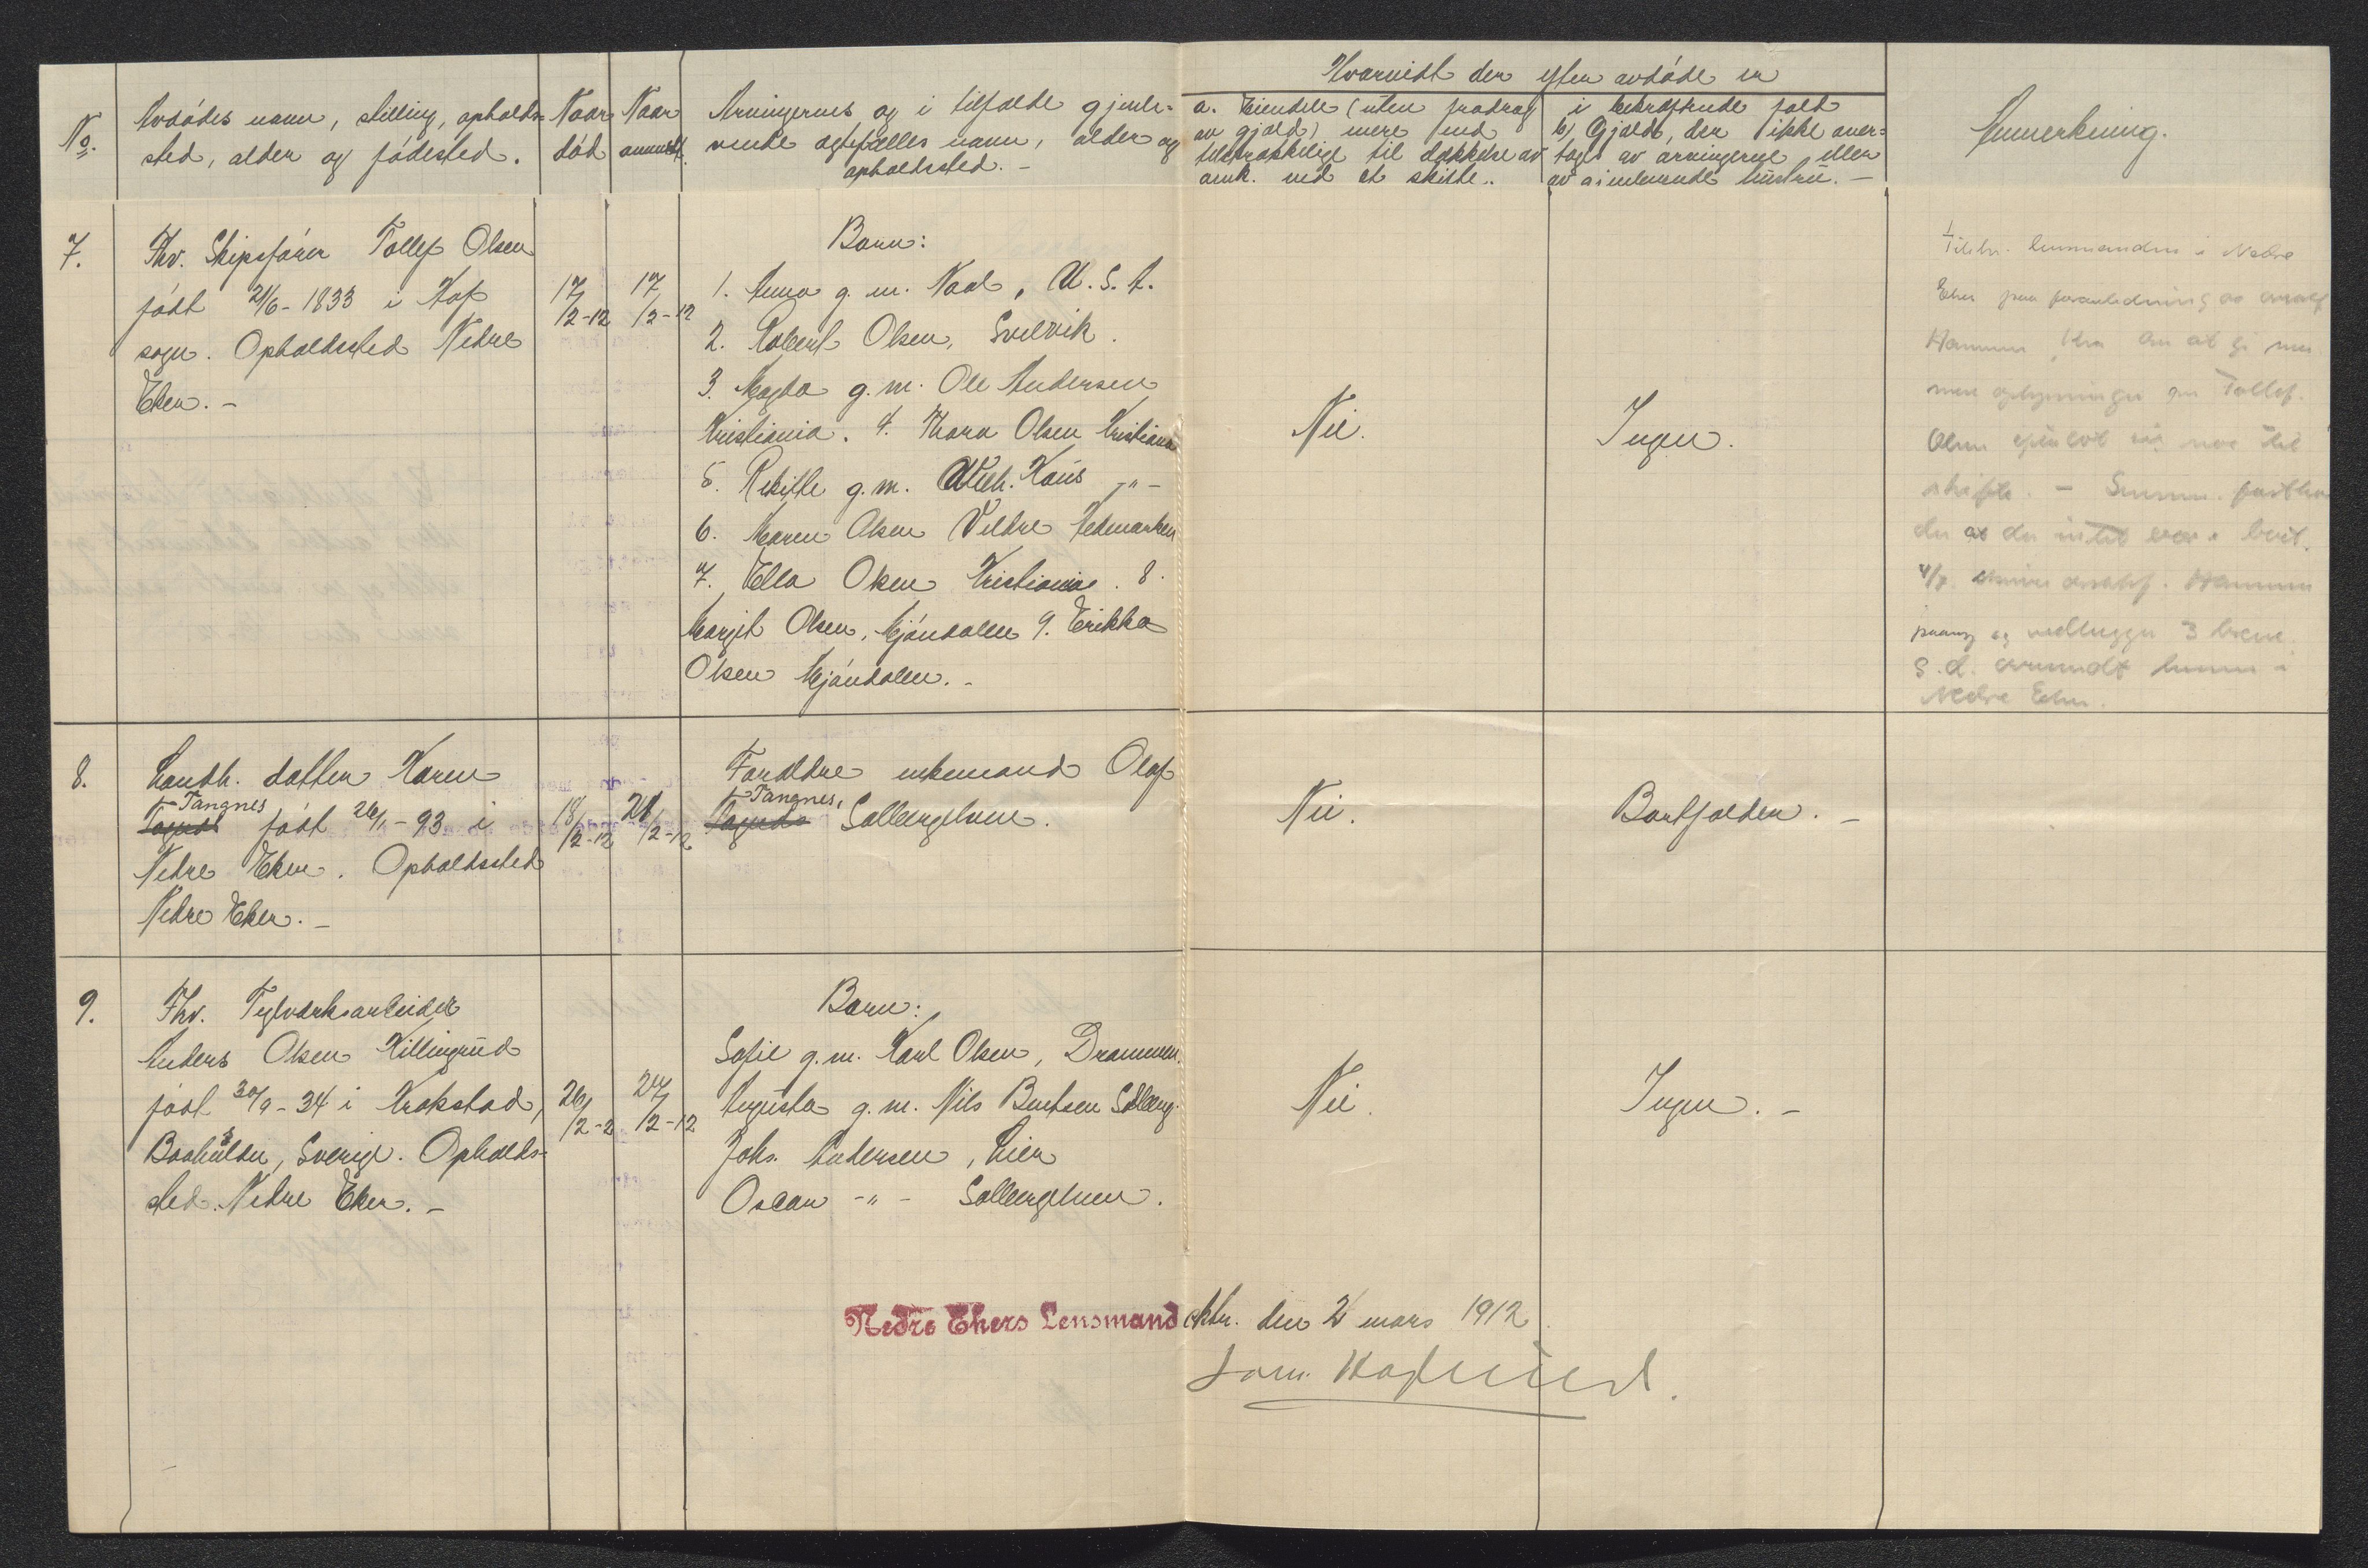 Hvorvidt der efter avdøde er
No.
Avdødes navn, stilling, opholds=
sted, alder og fødested.
Naar
død
Naar
anmeldt.
Arvingernes og i tilfælde gjenle=
vende ægtefælles navn, alder og
opholdssted. -
a. Eiendele (uten fradrag
av gjæld) mere end
tilstrækkelige til dækkelse av
omk. ved et skifte..
i bekræftende fald
b) Gjæld, der ikke over=
tages av arvingerne eller
av gjenlevende hustru. -
Anmerkning.
7.
Fhv. Skipsfører Tollef Olsen
født 21/6 - 1833 i Hof
sogn. Opholdssted Nedre
Eker. -
17/2-12
17/2-12
Barn:
1. Anna g. m. Naal, U.S.A.
2. Robert Olsen, Svelvik.
3. Magda g. m. Ole Andersen
Kristiania. 4. Thora Olsen Kristiania
5. g. m. Wilh. -"-
6. Maren Olsen Veldre Hedmarken
7. Ella Olsen Kristiania. 8.
Margit Olsen, Mjøndalen 9. Erikka
Olsen Mjøndalen. -
Nei.
Ingen.
Tilskr. lensmanden i Nedre
Eker paa foranledning av
Hammer, om at gi
oplysninger om Tollef
Olsen efterlot sig noe til
skifte. -
der at der intet var i boet.
4/7. Hammer
og vedlegger 3 breve.
S. d. i
Nedre Eker.
8.
Landh. datter Karen
Tangnes
født 26/1 - 93 i
Nedre Eker. Opholdssted
Nedre Eker. -
18/2-12
21/2-12
Forældre enkemand Olaf
Tangnes,
Solbergelven.
Nei.
Bortfalder. -
9.
Fhv. Teglværksarbeider
Anders Olsen Killingrud
født 30/9 - 34 i Krokstad,
Baahuslen, Sverige. Opholds-
sted. Nedre Eker. -
26/2-2
27/2-12
Barn:
Sofie g. m. Karl Olsen, Drammen.
Augusta g. m. Nils Berntsen Solberg.
Johs. Andersen, Lier
Oscar -"- Solbergelven.
Nei.
Ingen. -
Nedre Ekers Lensmand ktr. den 2 mars 1912